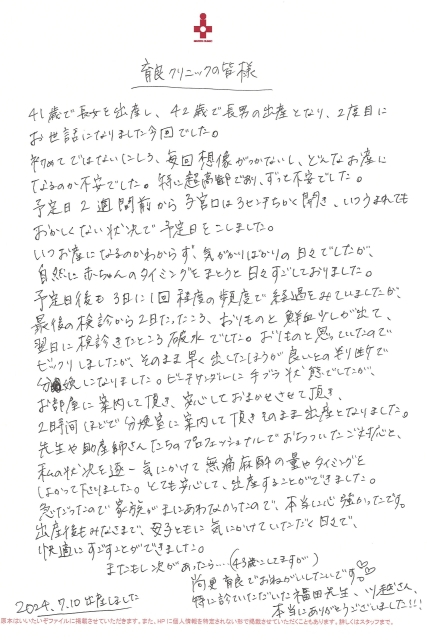 育良クリニックの皆様
41歳で長女を出産し、42歳で長男の出産となり、2度目に
お世話になりました今回でした。
初めてではないにしろ、毎回想像がつかないし、どんなお産に
なるのか不安でした。特に超高齢であり、ずっと不安でした。
予定日2週間前から子宮口は3センチちかく開き、いつうまれても
おかしくない状況で予定日をこしました。
いつお産になるのかわからず、気がかりばかりの日々でしたが、
自然に赤ちゃんのタイミングをまとうと日々すごしておりました。
予定日後も3日に1回程度の頻度で経過をみていましたが、
最後の検診から2日たったころ、おりものと鮮血少しが出て、
翌日に検診きたところ破水でした。おりものと思っていたので
ビックリしましたが、そのまま早く出したほうが良いとの判断で
分娩になりました。ビーチサンダルに手ブラ状態でしたが、
お部屋に案内して頂き、安心しておまかせさせて頂き、
2時間ほどで分娩室に案内して頂きそのまま出産となりました。
先生や助産師さんたちのプロフェッショナルでおちついたご対応と、
私の状況を逐一気にかけて無痛麻酔の量やタイミングを
はかって下さりました。とても安心して、出産することができました。
急だったので家族がまにあわなかったので、本当に心強かったです。
出産後もみなさまで、母子ともに気にかけていただく日々で、
快適にすごすことができました。
またもし次があったら…(43歳にしてますが)
尚更育良でおねがいしたいです。
特に診ていただいた福田先生、川越さん、
本当にありがとうございました!!!
2024.7.10 出産しました
原本はいいたいぞファイルに掲載させていただきます。また、HPに個人情報を特定されない形で掲載させていただくこともあります。詳しくはスタッフまで。